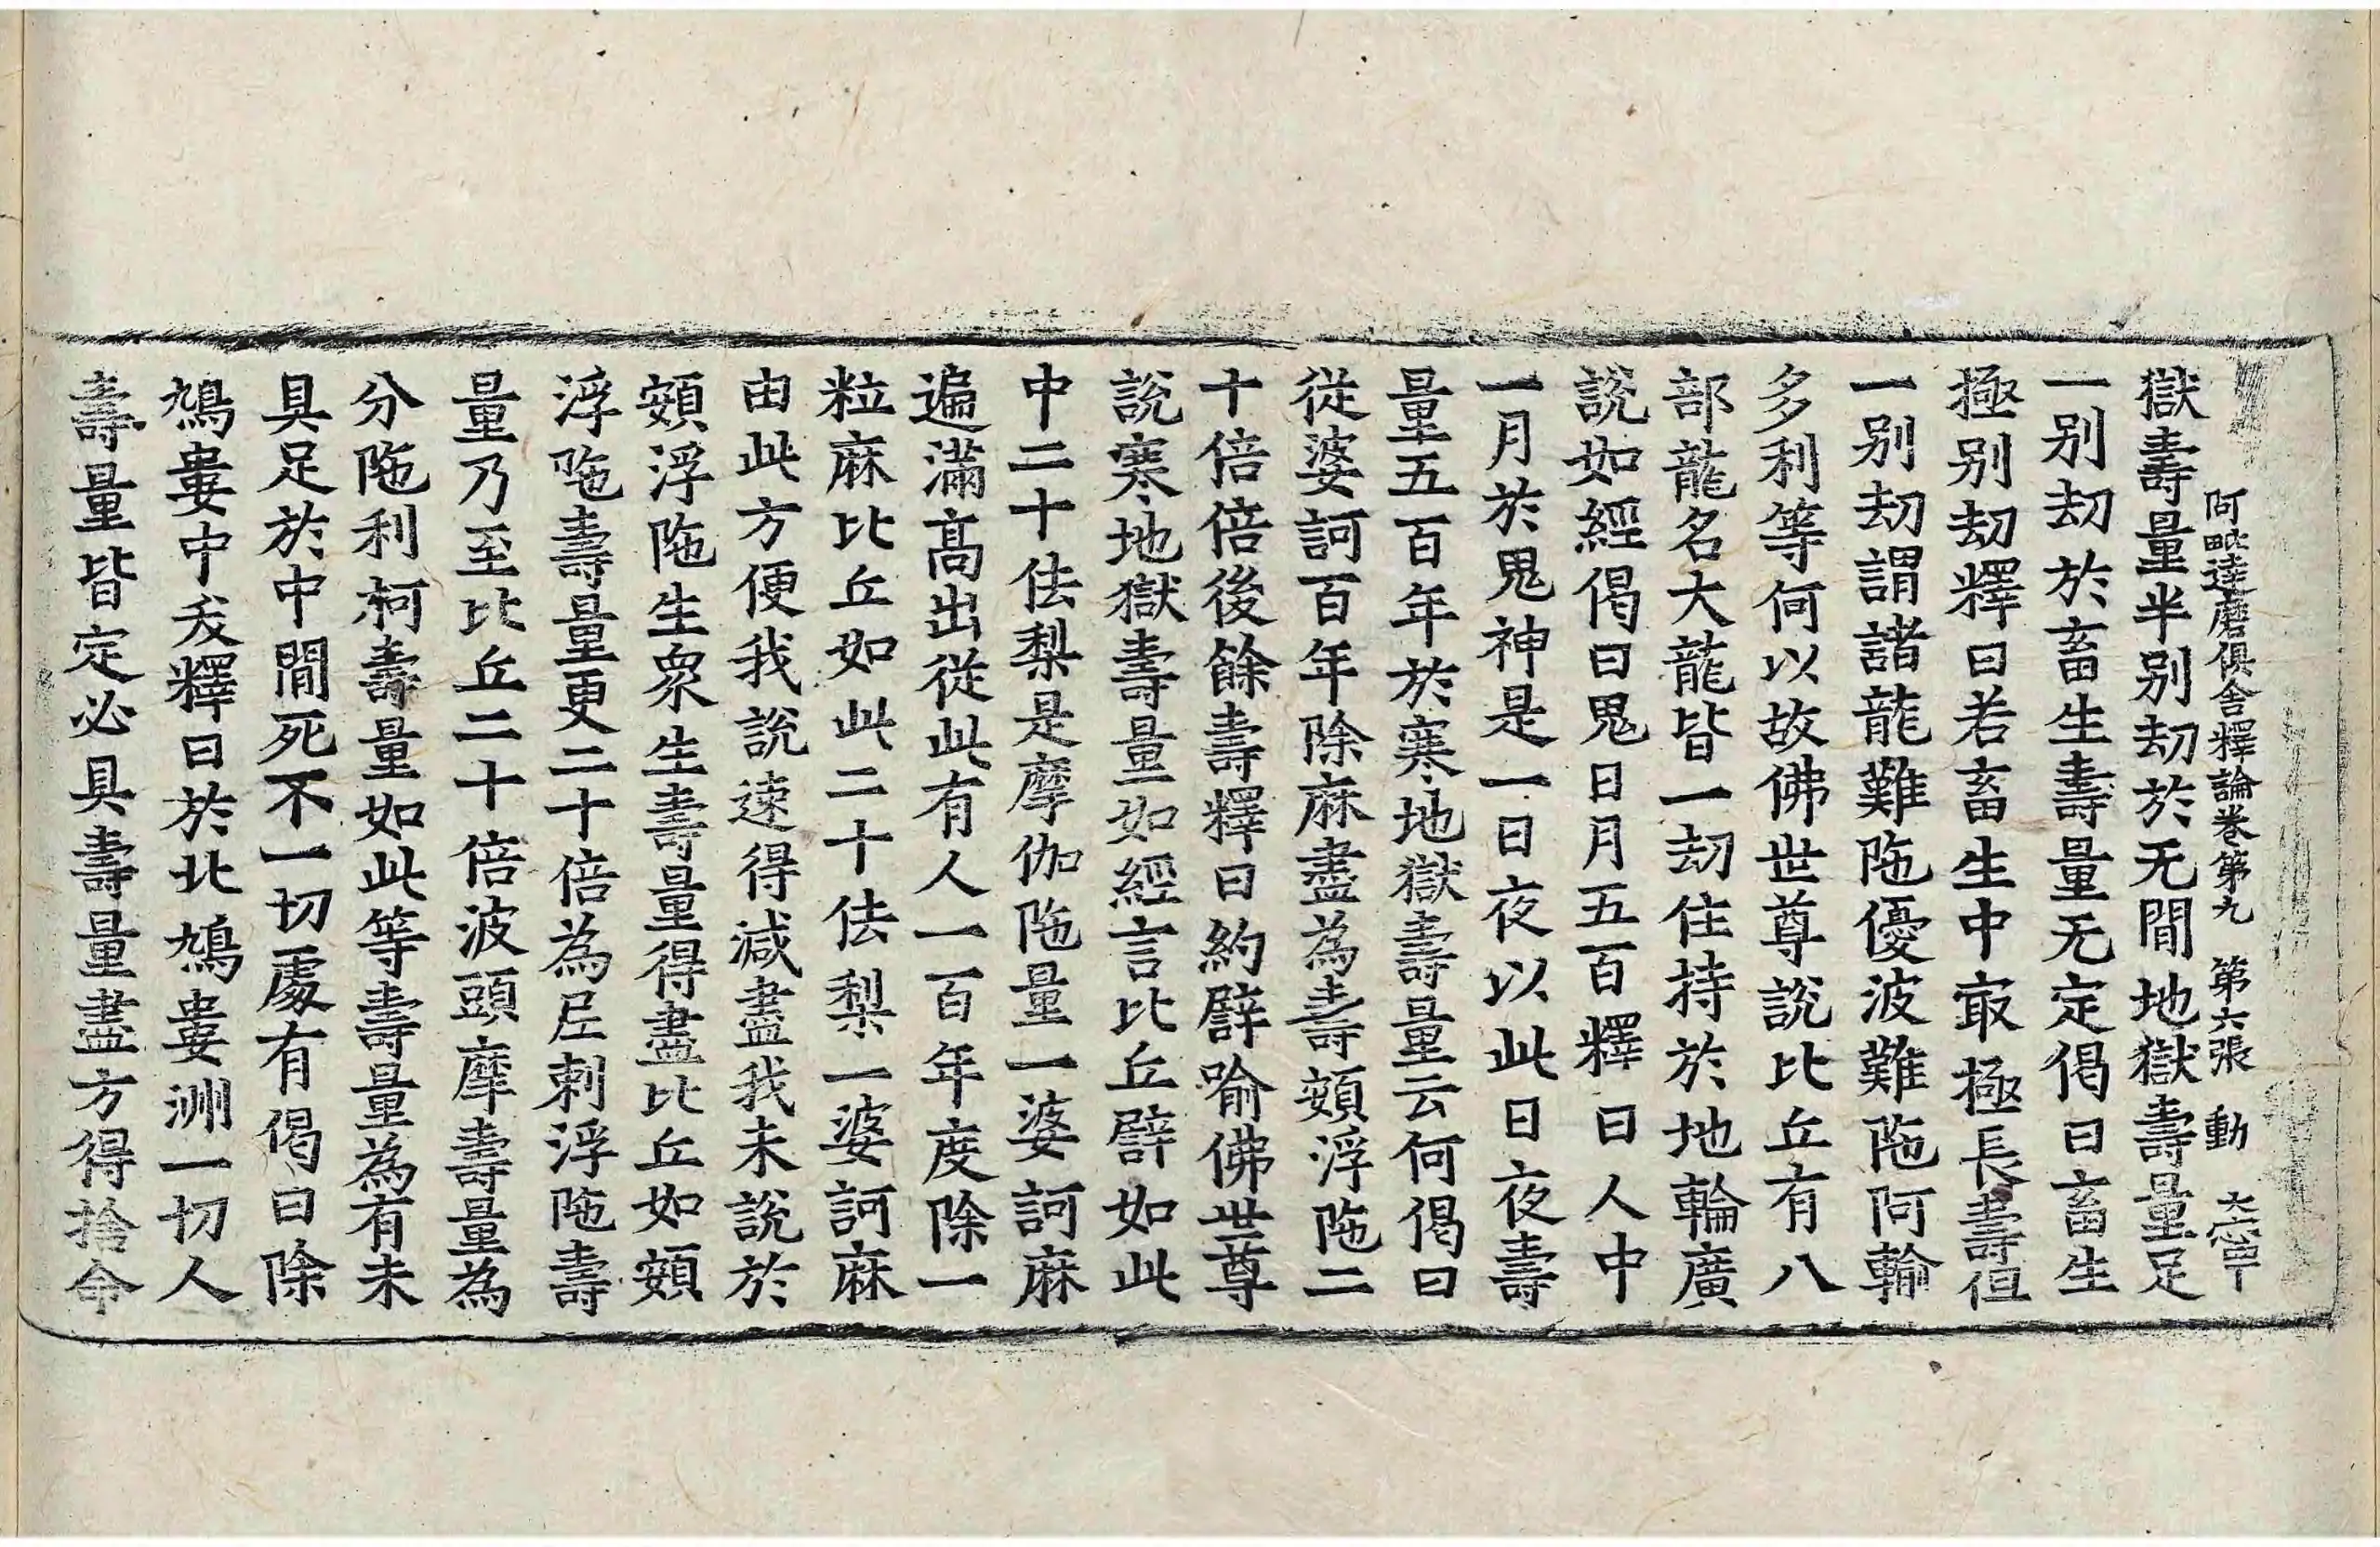 阿毗達磨俱舍釋論卷第九 第六張 動
獄壽量半別劫於无間地獄壽量足
一別劫於畜生壽量无定偈曰畜生
極別劫釋曰若畜生中㝡極長壽但
一別劫謂諸龍難陁優波難陁阿輸
多利等何以故佛世尊說比丘有八
部龍名大龍皆一劫住持於地輪廣
說如經偈曰鬼日月五百釋曰人中
一月於鬼神是一日夜以此日夜壽
量五百年於寒地獄壽量云何偈曰
從婆訶百年除麻盡為壽頞浮陁二
十倍倍後餘壽釋曰約譬喻佛世尊
說寒地獄壽量如經言比丘譬如此
中二十佉梨是摩伽陁量一婆訶麻
遍滿高出從此有人一百年度除一
粒麻比丘如此二十佉梨一婆訶麻
由此方便我說速得減盡我未說於
頞浮陁生衆生壽量得盡比丘如頞
浮陁壽量更二十倍為尼剌浮陁壽
量乃至比丘二十倍波頭摩壽量為
分陁利柯壽量如此等壽量為有未
具足於中間死不一切處有偈曰除
鳩婁中友釋曰於北鳩婁洲一切人
壽量皆定必具壽量盡方得捨命